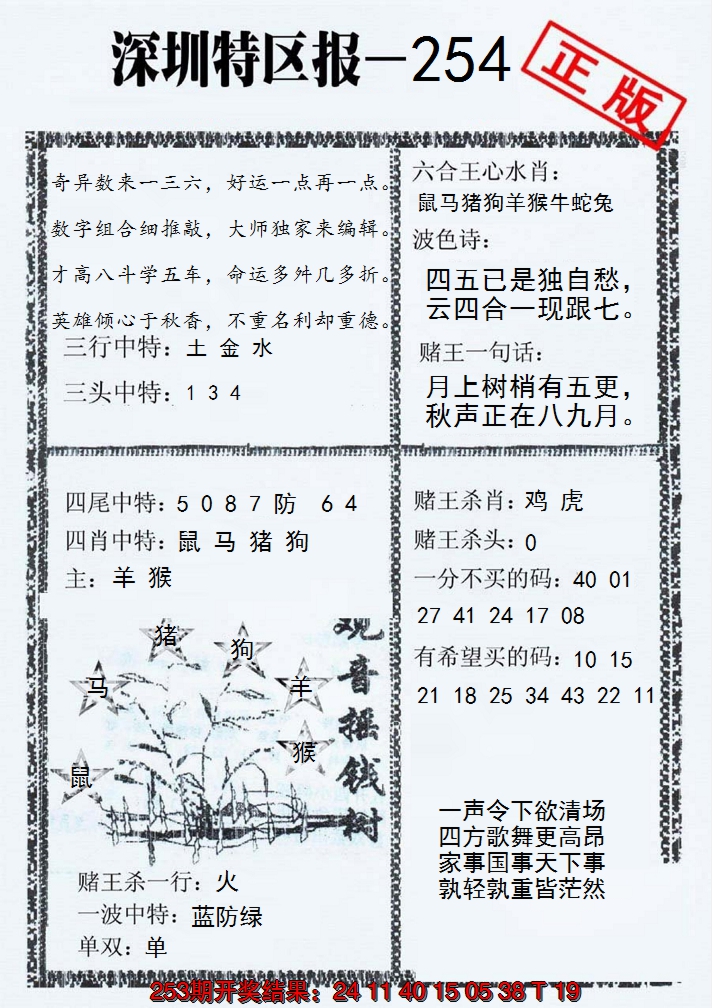 深圳特区报-254
正版
奇异数来一三六，好运一点再一点。
数字组合细推敲，大师独家来编辑。
才高八斗学五车，命运多舛几多折。
英雄倾心于秋香，不重名利却重德。
三行中特：土 金 水
三头中特：1 3 4
六合王心水肖：
鼠马猪狗羊猴牛蛇兔
波色诗：
四五已是独自愁，
云四合一现跟七。
赌王一句话：
月上树梢有五更，
秋声正在八九月。
四尾中特：5 0 8 7 防 6 4
四肖中特：鼠 马 猪 狗
主：羊 猴
猪
狗
马
羊
猴
鼠
观音摇钱树
赌王杀一行：火
一波中特：蓝防绿
单双：单
赌王杀肖：鸡 虎
赌王杀头：0
一分不买的码：40 01
27 41 24 17 08
有希望买的码：10 15
21 18 25 34 43 22 11
一声令下欲清场
四方歌舞更高昂
家事国事天下事
孰轻孰重皆茫然
253期开奖结果：24 11 40 15 05 38 T 19